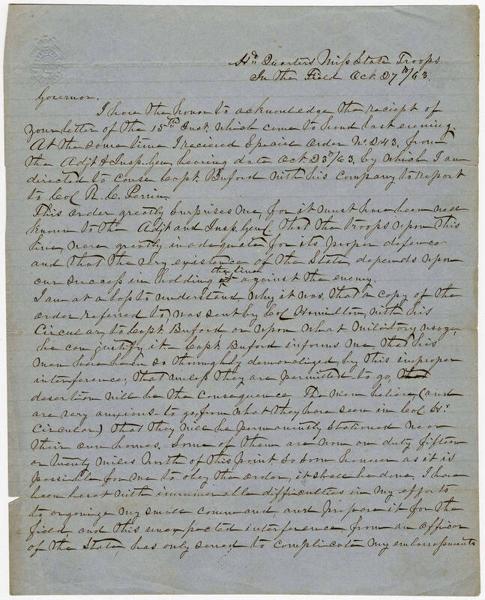 Hd Quarters Miss State Troops
In the Field Oct 27th/63
Governor,
I have the honor to acknowledge the reciept of
your letter of the 15th Inst. which came to hand last evening.
At the same time I received Special Order No 243, from
the Adjt & Insp Gen, bearing date Oct 23d/63, by which I am
directed to cause Capt Buford with his company to report
to Col R. C. Perrin.
This order greatly surprises me, for it must have been well
known to the Adjt and Insp Genl that the troops upon this
line were greatly inadequate for its proper defence
and that the very existence of the State depends upon
our success in holding the line against the enemy.
I am at a loss to understand why it was, that a copy of the
order referred to was sent by Col Hamilton with his
Circular, to Capt Buford or upon what military usage
he can justify it. Capt Buford informs me that his
men have been so thoroughly demoralized by this improper
interference, that unless they are permitted to go,
desertion will be the consequence. The men believe (and
are very anxious to go, from what they have seen in Col H's
Circular) that they will be permanently stationed near
their own homes. Some of them are now on duty fifteen
or twenty miles North of this point, & as soon however as it is
possible for me to obey the order, it shall be done. I have
been beset with innumerable difficulties in my efforts
to organize my small command and prepare it for the
field, and this unexpected interference from an officer
of the State, has only served to complicate my embarrassments